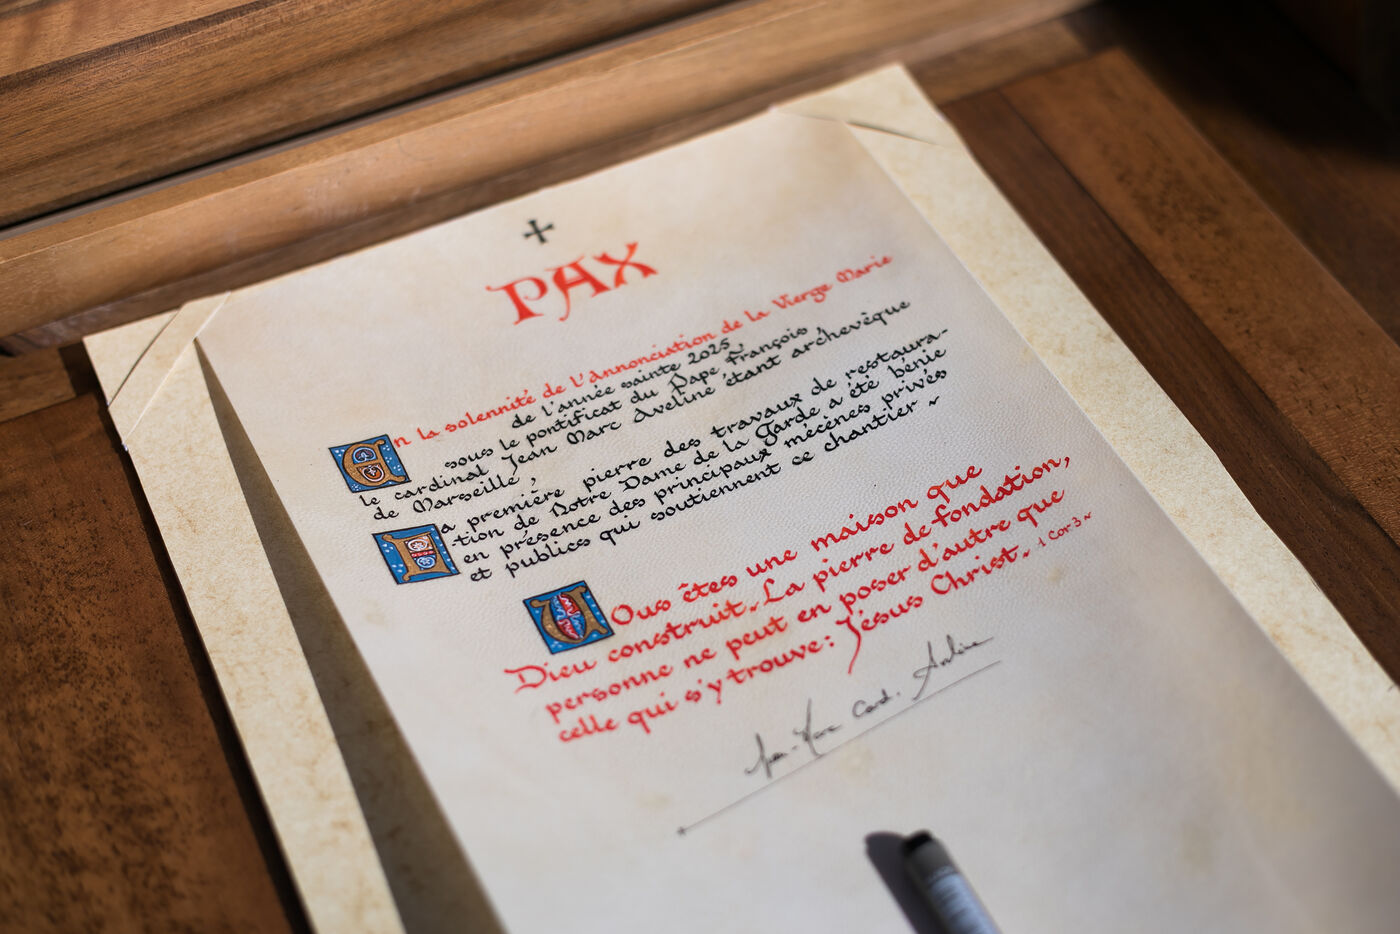 PAX
En la solennité de l'Annonciation de la Vierge Marie
de l'année sainte 2025
sous le pontificat du Pape François
le cardinal Jean Marc Aveline étant archevêque
de Marseille,
La première pierre des travaux de restaura-
-tion de Notre Dame de la Garde a été bénie
en présence des principaux mécènes privés
et publics qui soutiennent ce chantier ~
VOus êtes une maison que
Dieu construit. La pierre de fondation,
personne ne peut en poser d'autre que
celle qui s'y trouve: Jésus Christ. 1 Cor 3 ~
Jean-Marc Card. Aveline